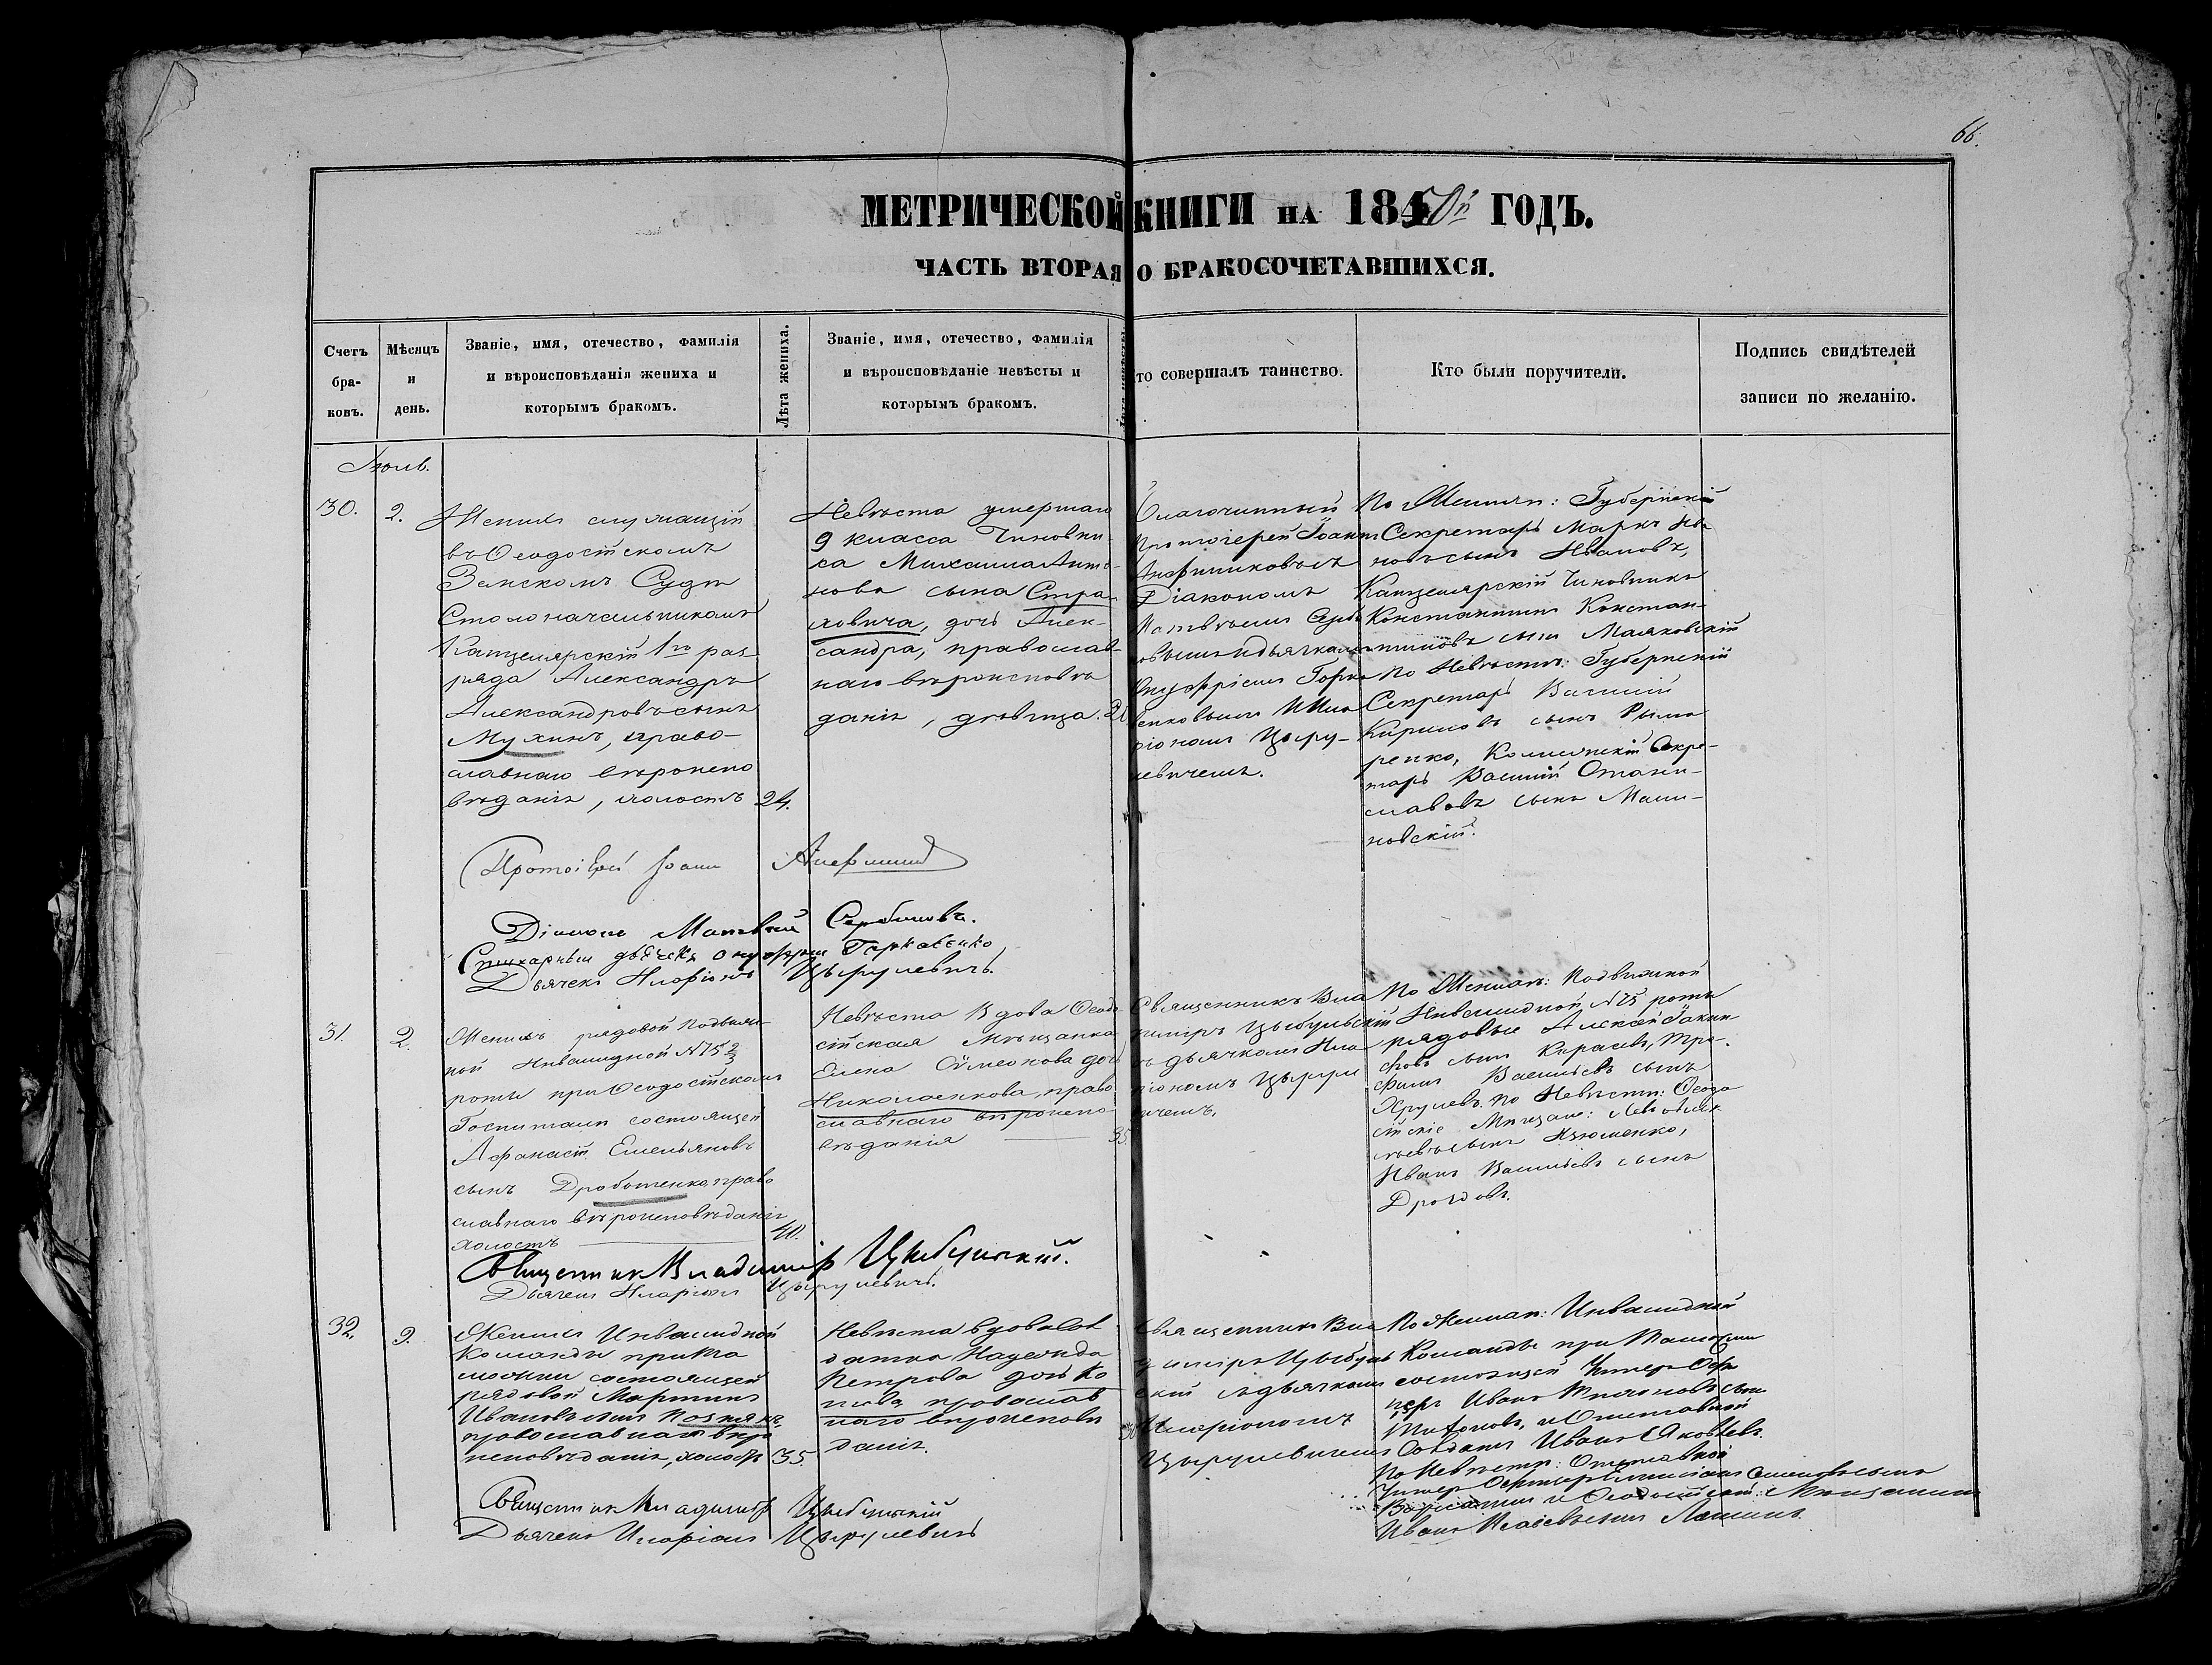 66.
МЕТРИЧЕСКОЙ КНИГИ НА 1850й ГОДЪ.
ЧАСТЬ ВТОРАЯ О БРАКОСОЧЕТАВШИХСЯ.
Счетъ
бра-
ковъ.
Мѣсяцъ
и
день.
Званіе, имя, отечество, фамилія
и вѣроисповѣданія жениха и
которымъ бракомъ.
Лѣта жениха.
Званіе, имя, отечество, фамилія
и вѣроисповѣданіе невѣсты и
которымъ бракомъ.
Лѣта невѣсты.
то совершалъ таинство.
Кто были поручители.
Подпись свидѣтелей
записи по желанію.
30.
2.
Женихъ служащій
въ Ѳеодосійскомъ
Земскомъ Судѣ
Столоначальникомъ
Канцелярскій 1го раз
ряда Александръ
Александровъ сынъ
Мухинъ, право-
славнаго вѣроиспо
вѣданія, холостъ
24.
Невѣста умершаго
9 класса Чиновни
ка Михаила Анто-
нова сына Стра-
ховича, дочь Алек-
сандра, православ-
наго вѣроисповѣ
данія, дѣвица.
Благочинный
Протоіерей Іоаннъ
Діакономъ
Матвѣемъ Серб
овымъ и дьячкам
Онуфріемъ Горко
венковымъ и Ила
ріономъ Цыру-
левичемъ.
По Женихѣ: Губернскій
Секретарь Маркъ Ива
новъ сынъ Ивановъ,
Канцелярскій Чиновникъ
Константинъ Констан-
тиновъ сынъ Маляковскій
По Невѣстѣ: Губернскій
Секретарь Василій
Кириловъ сынъ Рыма
ренко, Коллежскій Секре-
тарь Василій Стани-
славовъ сынъ Мали-
новскій.
Протоіерей Іоаннъ
Діаконъ Матвѣй Сербиновъ.
Стихарный дьячекъ Онуфрій Горковенко
Дьячекъ Иларіонъ Цырулевичъ.
31.
2.
Женихъ рядовой Подвиж
ной Инвалидной №75
роты при Ѳеодосійскомъ
Госпиталѣ состоящей
Аѳанасій Емельяновъ
сынъ Дроботенко, право
славнаго вѣроисповѣданія
холостъ
40.
Невѣста Вдова Ѳеодо
сійская Мѣщанка
Елена Сѵмеонова дочь
Николаенкова, право
славнаго вѣроиспо-
вѣданія
35
Священникъ Вла
димиръ Цыбульскій
съ дьячкомъ Ила
ріономъ Цырул
вичемъ.
По Женихѣ: Подвижной
Инвалидной №75 роты
рядовые Алексѣй Іакин
фовъ сынъ Карасевъ, Тро-
фимъ Васильевъ сынъ
Хрулевъ. По Невѣстѣ: Ѳеодо
сійскіе Мѣщане: Левъ Алек
сѣевъ сынъ Изюменко,
Иванъ Васильевъ сынъ
Дроздовъ.
Священникъ Владимиръ Цыбульскій.
Дьячекъ Иларіонъ Цырулевичъ.
32.
9.
Женихъ Инвалидной
Команды при Та
можни состоящей
рядовой Мартинъ
Ивановъ сынъ
православнаго вѣро
исповѣданія, холостъ
35.
Невѣста вдова Сол
датка Надежда
Петрова дочь
православ
наго вѣроисповѣ
данія.
Священникъ Вла
димиръ Цыбуль
скій съ дьячкомъ
Иларіономъ
Цырулевичемъ
По Женихѣ: Инвалидной
Команды при Таможни
состоящей Унтеръ Офи
церъ Иванъ
и Отставной
Солдатъ Иванъ Яковлевъ.
По Невѣстѣ: Отставной
Унтеръ Офицеръ
и Ѳеодосійскій Мѣщанинъ
Иванъ
Священникъ Владимиръ Цыбульскій
Дьячекъ Иларіонъ Цырулевичъ